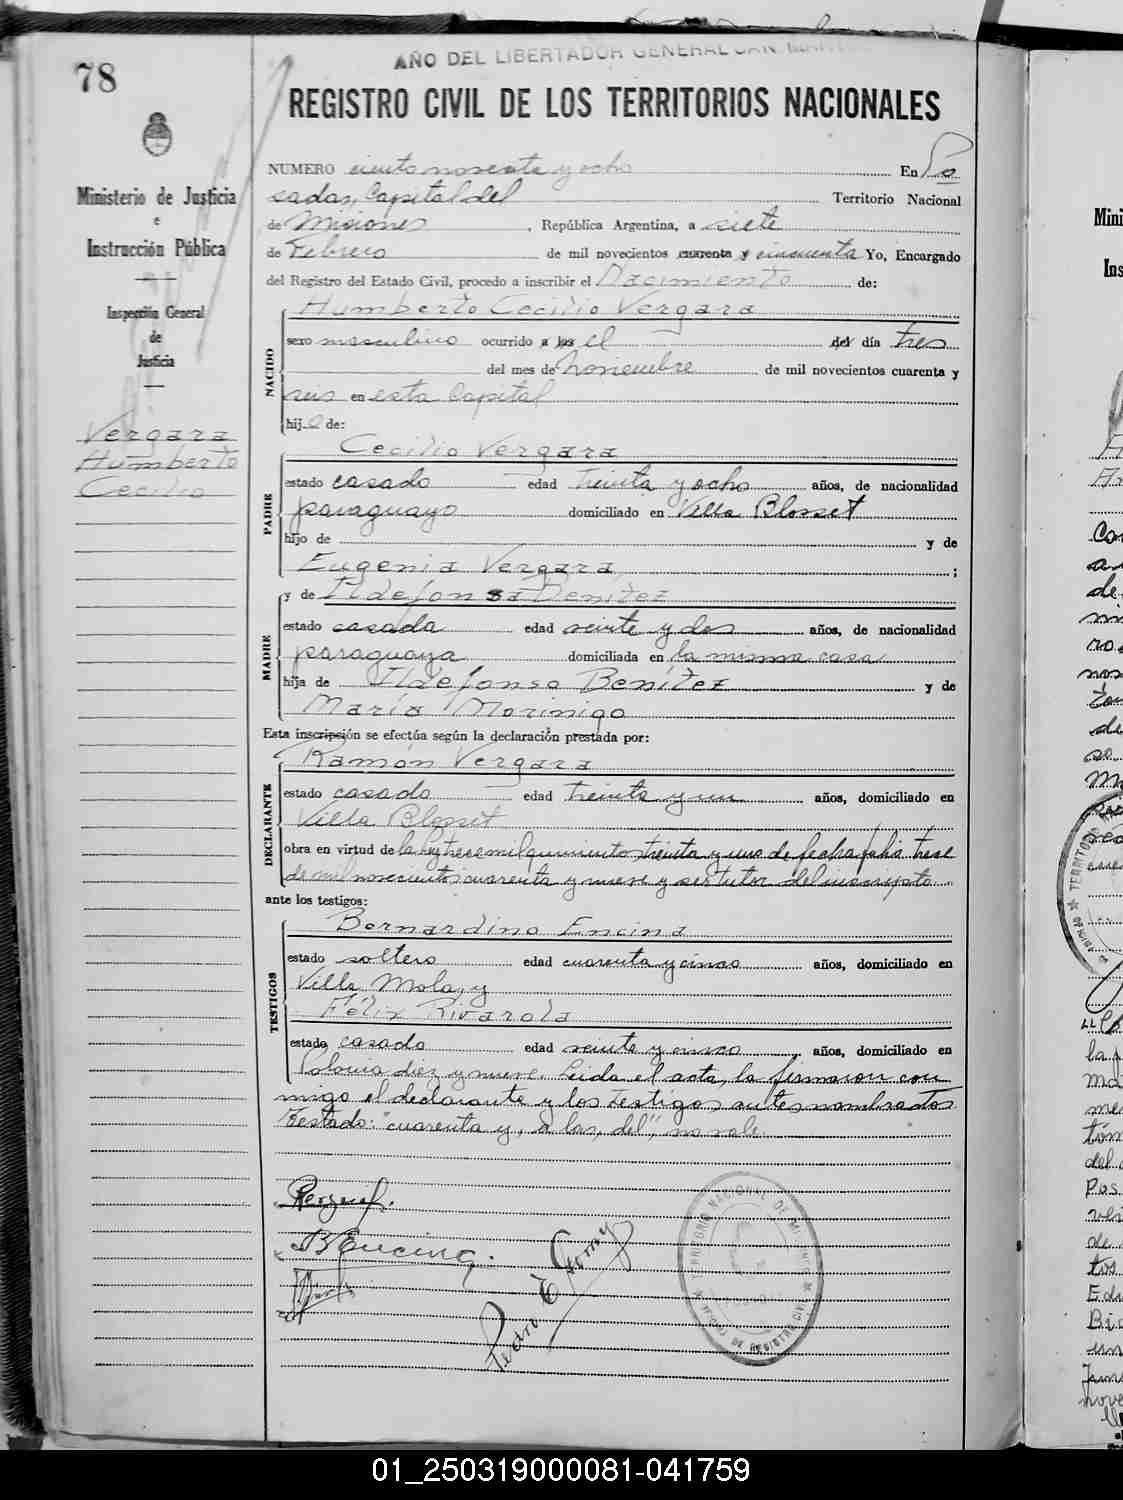 78
AÑO DEL LIBERTADOR GENERAL SAN
REGISTRO CIVIL DE LOS TERRITORIOS NACIONALES
Ministerio de Justicia
e
Instrucción Pública
Inspección General
de
Justicia
Vergara
Humberto
Cecilio
NUMERO ciento noventa y ocho En Po
sadas, Capital del Territorio Nacional
de Misiones, República Argentina, a siete
de Febrero de mil novecientos cuarenta y cincuenta Yo, Encargado
del Registro del Estado Civil, procedo a inscribir el Nacimiento de:
NACIDO
Humberto Cecilio Vergara
sexo masculino ocurrido a las el del día tres
del mes de Noviembre de mil novecientos cuarenta y
seis en esta Capital
hijo de:
PADRE
Cecilio Vergara
estado casado edad treinta y ocho años, de nacionalidad
paraguayo domiciliado en Villa Blosset
hijo de y de
Eugenia Vergara ;
MADRE
y de Ildefonsa Benitez
estado casada edad veinte y dos años, de nacionalidad
paraguaya domiciliada en la misma casa
hija de Ildefonso Benítez y de
María Morinigo
Esta inscripción se efectúa según la declaración prestada por:
DECLARANTE
Ramón Vergara
estado casado edad treinta y un años, domiciliado en
Villa Blosset
obra en virtud de la ley trece mil quinientos treinta y uno de fecha julio trece
de mil novecientos cuarenta y nueve y ser tutor del inscripto
ante los testigos:
TESTIGOS
Bernardino Encina
estado soltero edad cuarenta y cinco años, domiciliado en
Villa Mola, y
Félix Rivarola
estado casado edad veinte y cinco años, domiciliado en
Colonia diez y nueve. Leida el acta, la firmaron con
migo el declarante y los testigos antes nombrados.
Testado: "cuarenta y, a las, del", no vale.
B Encina.
Pedro E Gomez
TERRITORIO NACIONAL DE MISIONES
DE REGISTRO CIVIL
01_250319000081-041759